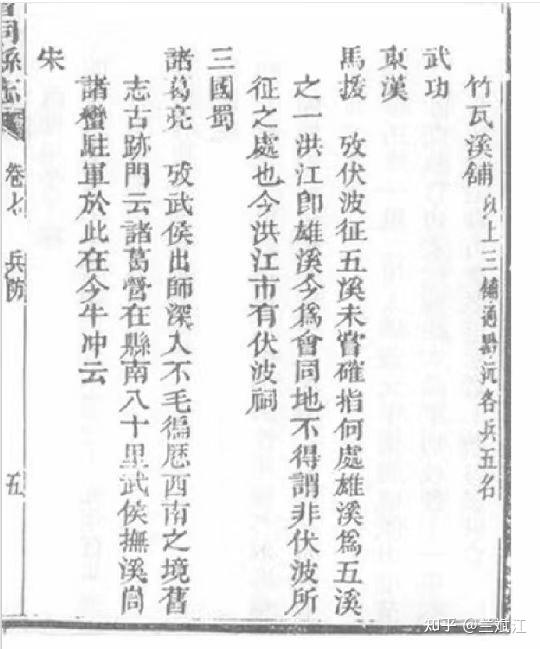 竹瓦溪舖以上三舖通黔沅各兵五名
武功
東漢
馬援 攷伏波征五溪未嘗確指何處雄溪爲五溪
之一洪江即雄溪今爲會同地不得謂非伏波所
征之處也今洪江市有伏波祠
三國蜀
諸葛亮 攷武侯出師深入不毛徧歷西南之境舊
志古跡門云諸葛營在縣南八十里武侯撫溪峝
諸蠻駐軍於此在今牛冲云
宋
會同縣志 卷七 兵防 五
知乎 @兰斌江